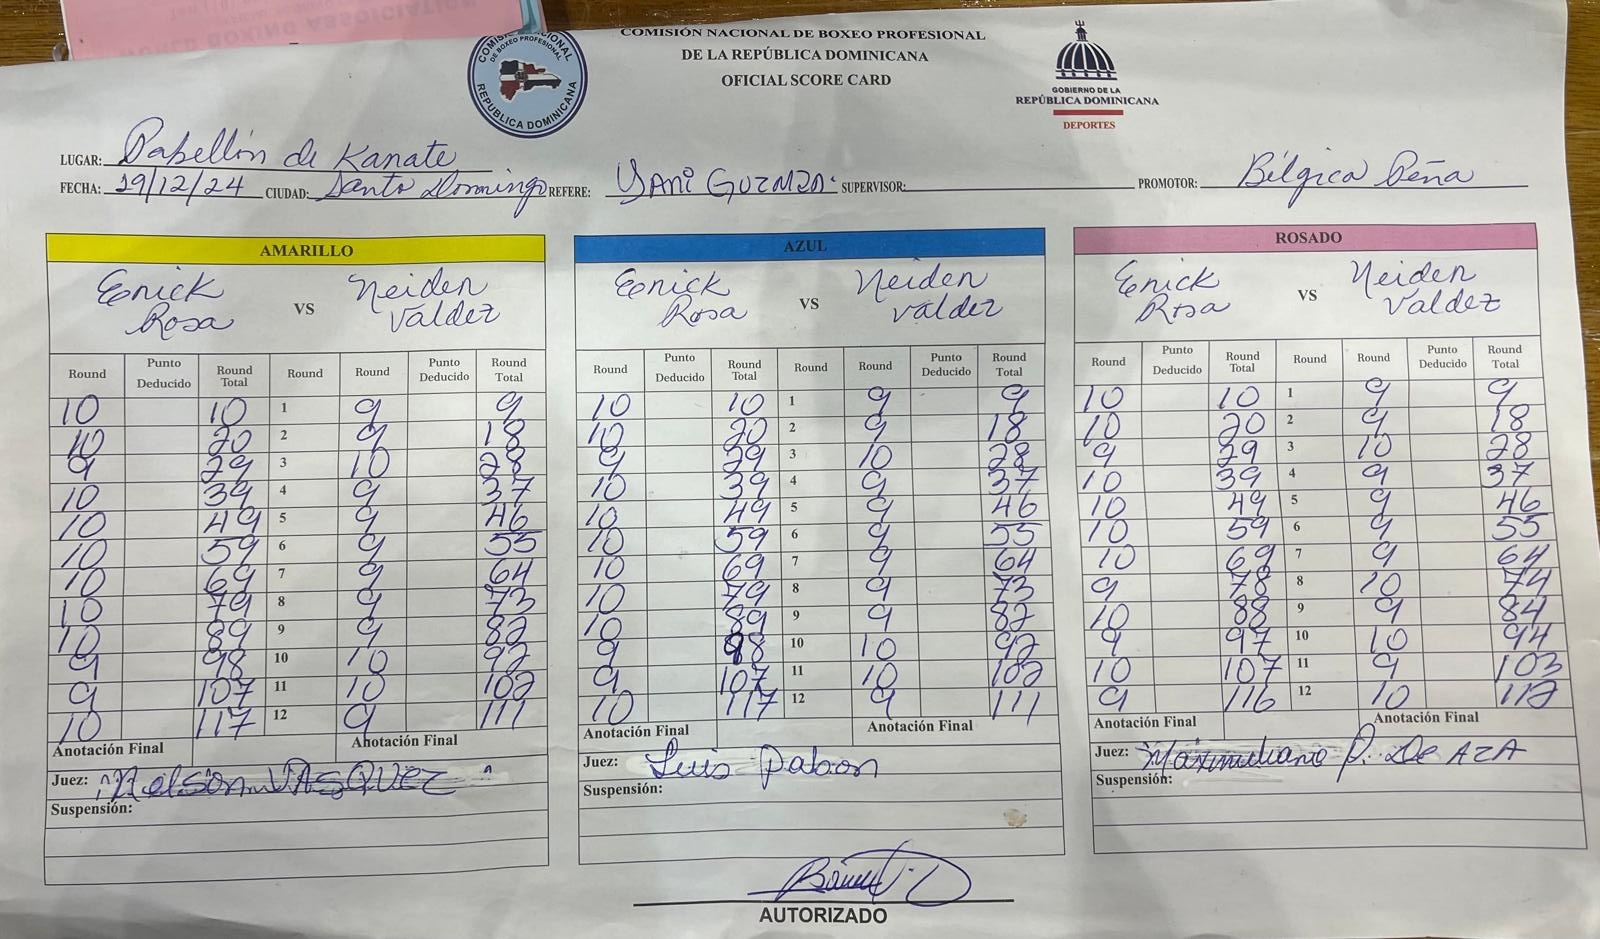 COMISIÓN NACIONAL DE BOXEO PROFESIONAL
DE LA REPÚBLICA DOMINICANA
OFICIAL SCORE CARD
COMISIÓN NACIONAL
DE BOXEO PROFESIONAL
REPUBLICA DOMINICANA
GOBIERNO DE LA
REPÚBLICA DOMINICANA
DEPORTES
LUGAR: Pabellón de Kanate
FECHA: 29/12/24 CIUDAD: Santo Domingo REFERE: Yani Guzman SUPERVISOR: PROMOTOR: Bélgica Peña
AMARILLO
Enick Rosa VS Neiden Valdez
Round Punto Deducido Round Total Round Round Punto Deducido Round Total
10 10 1 9 9
10 20 2 9 18
9 29 3 10 28
10 39 4 9 37
10 49 5 9 46
10 59 6 9 55
10 69 7 9 64
10 79 8 9 73
10 89 9 9 82
9 98 10 10 92
9 107 11 10 102
10 117 12 9 111
Anotación Final Anotación Final
Juez: Nelson VASQUEZ
Suspensión:
AZUL
Enick Rosa VS Neiden Valdez
Round Punto Deducido Round Total Round Round Punto Deducido Round Total
10 10 1 9 9
10 20 2 9 18
9 29 3 10 28
10 39 4 9 37
10 49 5 9 46
10 59 6 9 55
10 69 7 9 64
10 79 8 9 73
10 89 9 9 82
9 98 10 10 92
9 107 11 10 102
10 117 12 9 111
Anotación Final Anotación Final
Juez: Luis Pabon
Suspensión:
ROSADO
Enick Rosa VS Neiden Valdez
Round Punto Deducido Round Total Round Round Punto Deducido Round Total
10 10 1 9 9
10 20 2 9 18
9 29 3 10 28
10 39 4 9 37
10 49 5 9 46
10 59 6 9 55
10 69 7 9 64
9 78 8 10 74
10 88 9 9 84
9 97 10 10 94
10 107 11 9 103
9 116 12 10 112
Anotación Final Anotación Final
Juez: Maximiliano P. De AZA
Suspensión:
AUTORIZADO